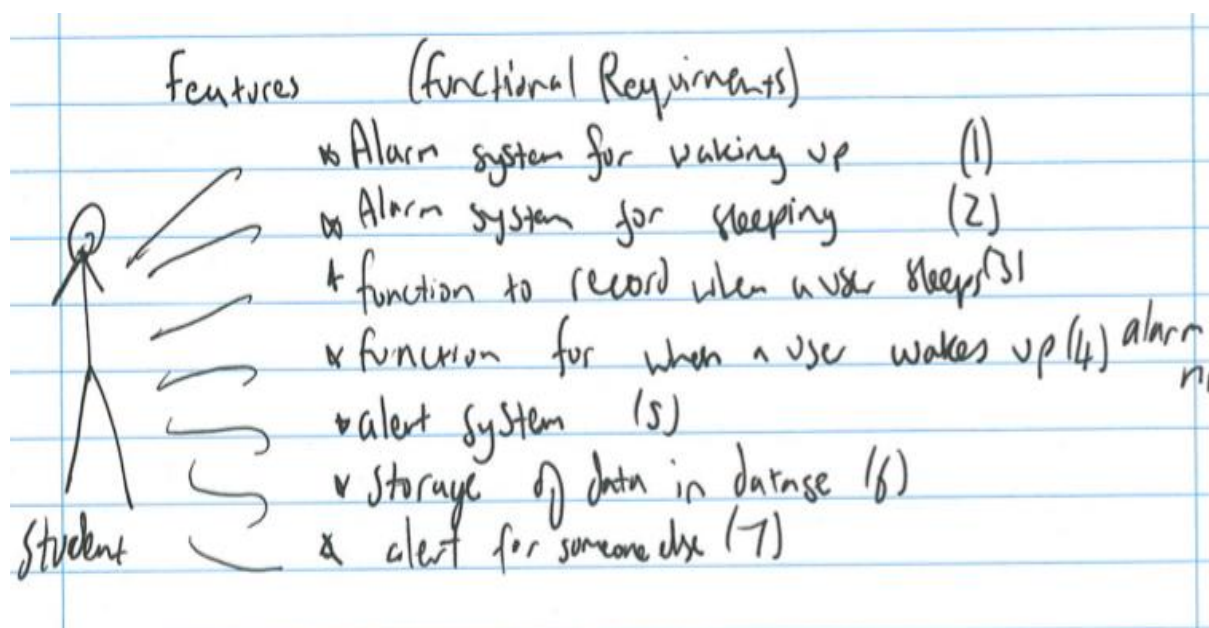 features (functional Requirments)
* Alarm system for waking up (1)
* Alarm system for sleeping (2)
* function to record when a user sleeps (3)
* function for when a user wakes up (4) alarm
* alert system (5)
* Storage of data in datase (6)
* alert for someone else (7)
Student